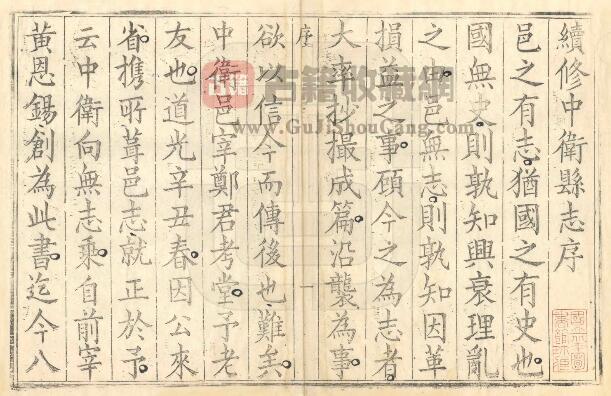 續修中衛縣志序
邑之有志猶國之有史也
國無史則孰知興衰理亂
之由邑無志則孰知因革
損益之事顧今之為志者
大率抄撮成篇沿襲為事
序
一
欲以信今而傳後也難矣
中衛邑宰鄭君考堂予老
友也道光辛丑春因公來
省攜所葺邑志就正於予
云中衛向無志乘自前宰
黃恩錫創為此書迄今八
古籍收藏網
www.GuJiShouCang.com